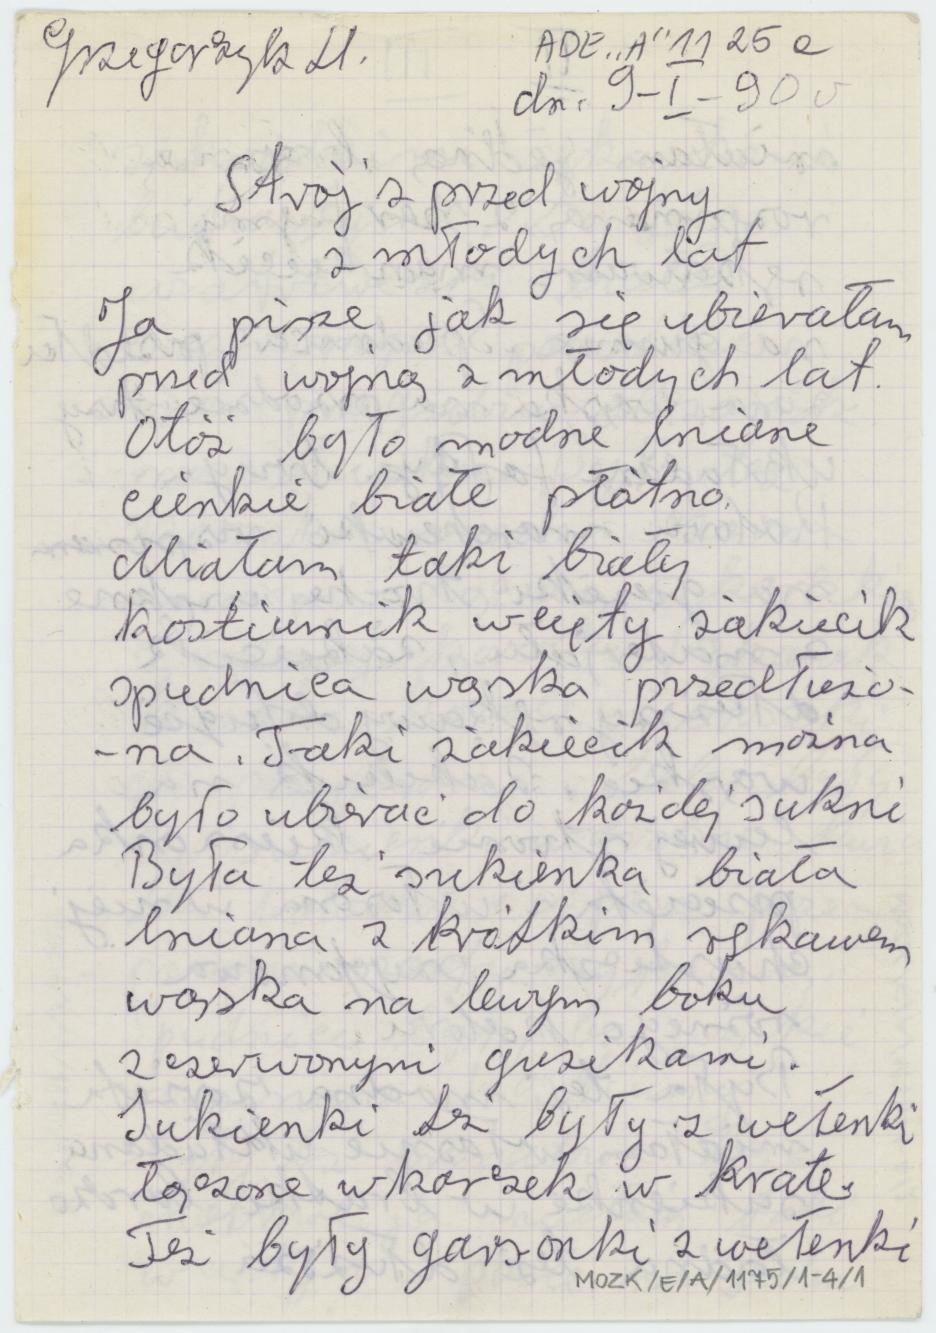 Grzegorzyk M.
ADE „A" 1125 e
dn. 9-I-90 r
Strój z przed wojny
z młodych lat
Ja pisze jak się ubierałam
przed wojną z młodych lat.
Otóż było modne lniane
cienkie białe płótno.
Miałam taki biały
kostiumik wcięty żakiecik
spudnica wąska przedłużo-
-na. Taki żakiecik można
było ubierać do każdej sukni
Była też sukienka biała
lniana z krótkim rękawem
wąska na lewym boku
zczerwonymi guzikami.
Sukienki też były z wełenki
łączone wkarczek w krate.
Też były garsonki z wełenki
MOZK/E/A/1175/1-4/1